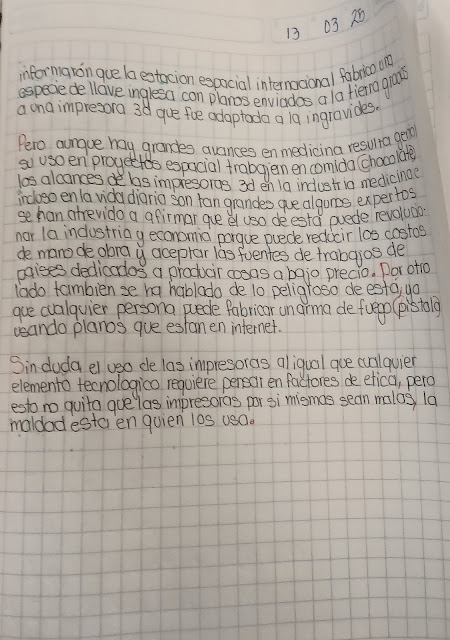 13 03 20
información que la estacion espacial internacional fabrico una
especie de llave inglesa con planos enviados a la tierra gracias
a una impresora 3d que fue adaptada a la ingravides.
Pero aunque hay grandes avances en medicina resulta genial
su uso en proyectos espacial trabajen en comida (chocolate)
los alcances de las impresoras 3d en la industria medicina e
incluso en la vida diaria son tan grandes que algunos expertos
se han atrevido a afirmar que el uso de esta puede revolucio-
nar la industria y economia porque puede reducir los costos
de mano de obra y aceptar las fuentes de trabajos de
paises dedicados a producir cosas a bajo precio. Por otro
lado tambien se ha hablado de lo peligroso de esta, ya
que cualquier persona puede fabricar un arma de fuego (pistola)
usando planos que estan en internet.
Sin duda el uso de las impresoras al igual que cualquier
elemento tecnologico requiere pensar en factores de etica, pero
esto no quita que las impresoras por si mismas sean malas, la
maldad esta en quien los usa.